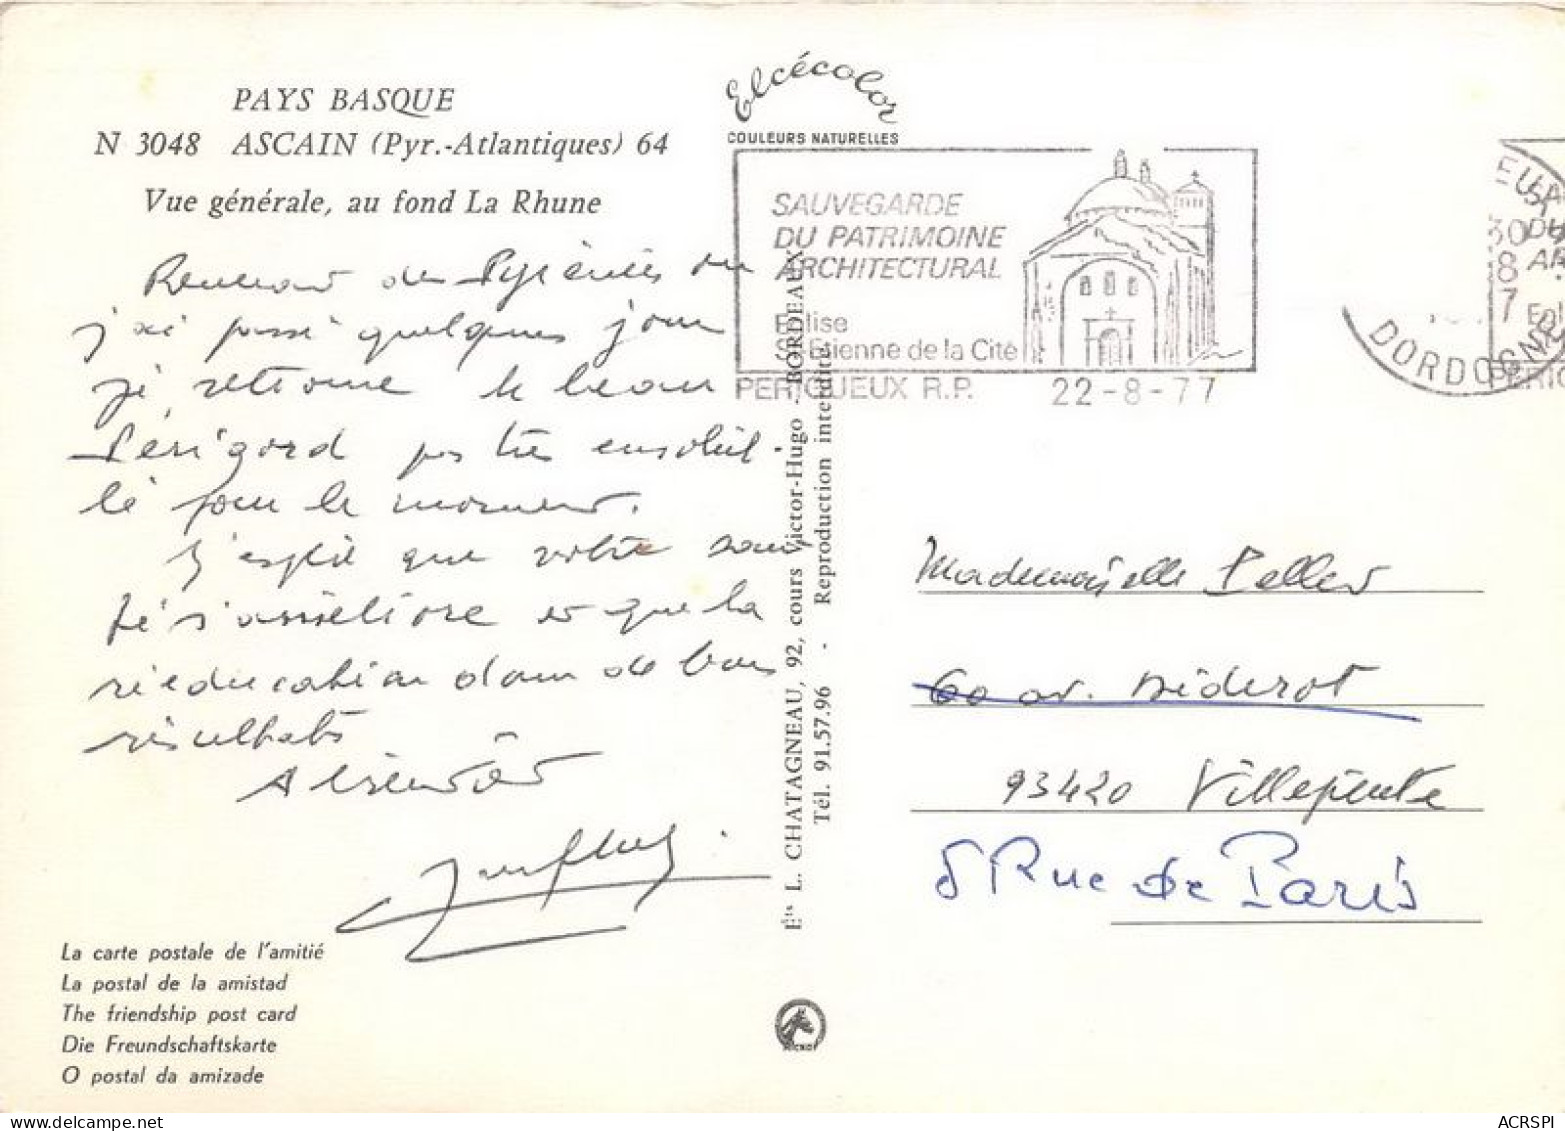 PAYS BASQUE
N 3048 ASCAIN (Pyr.-Atlantiques) 64
Vue générale, au fond La Rhune
Revenant des Pyrénées ou
j'ai passé quelques jours
je retrouve le beau
Périgord pas très ensoleil-
lé pour le moment.
J'espère que votre san-
té s'améliore et que la
rééducation donne de bons
résultats
A bientôt
La carte postale de l'amitié
La postal de la amistad
The friendship post card
Die Freundschaftskarte
O postal da amizade
Elcécolor
COULEURS NATURELLES
SAUVEGARDE
DU PATRIMOINE
ARCHITECTURAL
Eglise
St Etienne de la Cité
PERIGUEUX R.P. 22-8-77
Éts L. CHATAGNEAU, 92, cours Victor-Hugo - BORDEAUX
Tél. 91.57.96 - Reproduction interdite
DORDOGNE
Mademoiselle
60 av. Diderot
93420 Villepinte
8 Rue de Paris
ACRSPI